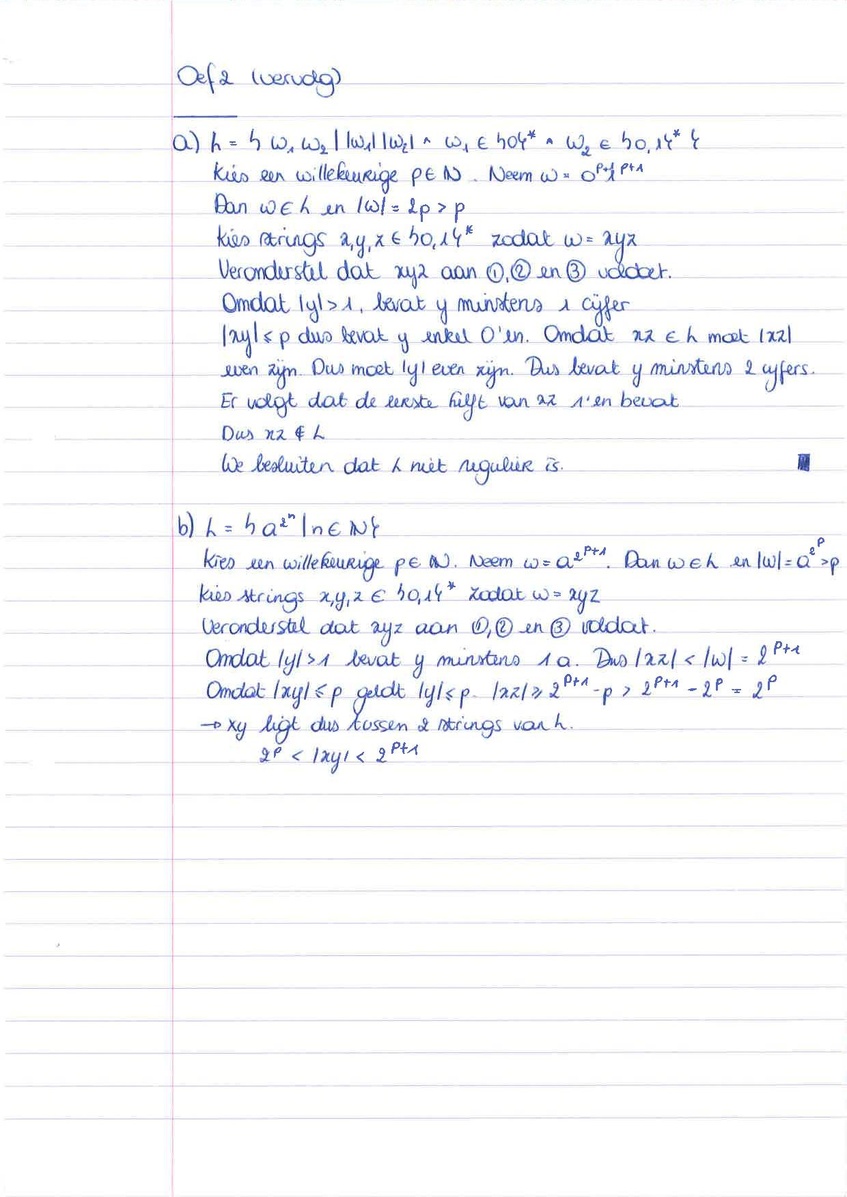 Oef 2 (vervolg)
a) L = { w₁ w₂ | |w₁| |w₂| ∧ w₁ ∈ {0}* ∧ w₂ ∈ {0,1}* }
Kies een willekeurige p ∈ N. Neem w = 0^{p+1}1^{p+1}
Dan w ∈ L en |w| = 2p > p
Kies strings x,y,z ∈ {0,1}* zodat w = xyz
Veronderstel dat xyz aan ①,② en ③ voldoet.
Omdat |y| > 1, bevat y minstens 1 cijfer
|xy| ≤ p dus bevat y enkel 0'en. Omdat xz ∈ L moet |xz|
even zijn. Dus moet |y| even zijn. Dus bevat y minstens 2 cyfers.
Er volgt dat de eerste helft van xz 1'en bevat
Dus xz ∉ L
We besluiten dat L niet regulier is.
b) L = { a^{2^n} | n ∈ N }
Kies een willekeurige p ∈ N. Neem w = a^{2^{p+1}}. Dan w ∈ L en |w| = a^{2^p} > p
Kies strings x,y,z ∈ {0,1}* zodat w = xyz
Veronderstel dat xyz aan ①,② en ③ voldoet.
Omdat |y| > 1 bevat y minstens 1 a. Dus |xz| < |w| = 2^{p+1}
Omdat |xy| ≤ p geldt |y| ≤ p. |xz| ≥ 2^{p+1} - p > 2^{p+1} - 2^p = 2^p
→ xy ligt dus tussen 2 strings van L.
2^p < |xy| < 2^{p+1}